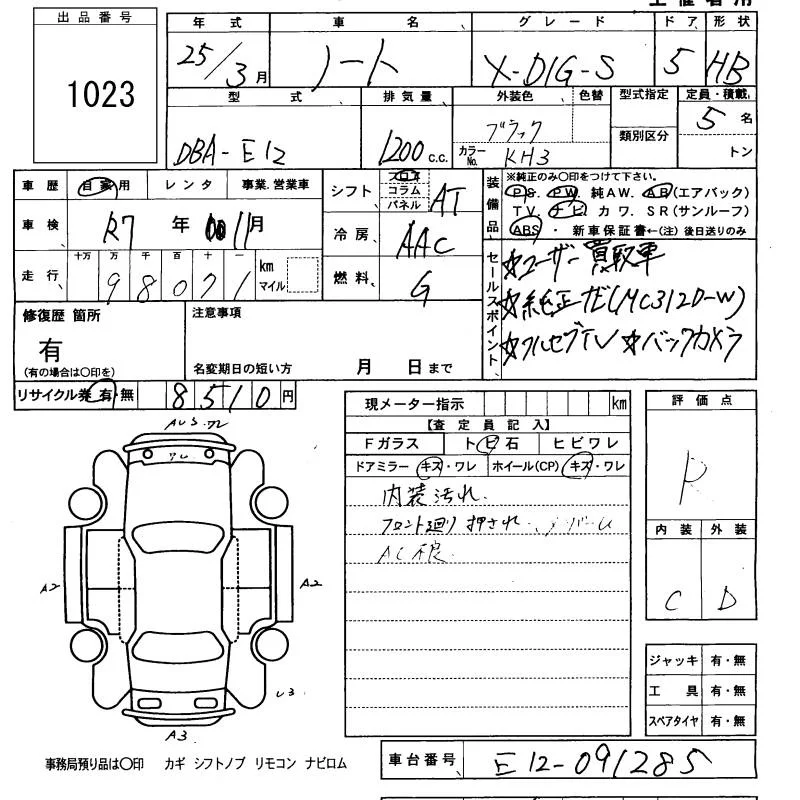 出品番号
1023
年式 車名 グレード ドア 形状
25/3月 ノート X-DIG-S 5 HB
型式 排気量 外装色 色替 型式指定 定員・積載
DBA-E12 1200c.c. ブラック 類別区分 5名
カラーNo. KH3 トン
車歴 自家用 レンタ 事業.営業車
車検 R7年 11月
走行 十万 万 千 百 十 一 km マイル
98071
シフト フロア コラム パネル AT
冷房 AAC
燃料 G
装備品
※純正のみ〇印をつけて下さい。
P.S. P.W. 純AW. A.B(エアバック)
TV. ナビ カワ. SR(サンルーフ)
ABS ・ 新車保証書←(注)後日送りのみ
セールスポイント
☆ユーザー買取車
☆純正ナビ(MC312D-W)
☆フルセグTV ☆バックカメラ
修復歴 箇所
有
(有の場合は〇印を)
注意事項
名変期日の短い方 月 日まで
リサイクル券 有・無 8510円
現メーター指示 km
【査定員記入】
Fガラス トビ石 ヒビワレ
ドアミラー キズ・ワレ ホイール(CP) キズ・ワレ
内装汚れ.
フロント廻り押され
AC不良
評価点
R
内装 外装
C D
ジャッキ 有・無
工具 有・無
スペアタイヤ 有・無
A2
A2
U3
A3
事務局預り品は〇印 カギ シフトノブ リモコン ナビロム
車台番号 E12-091285